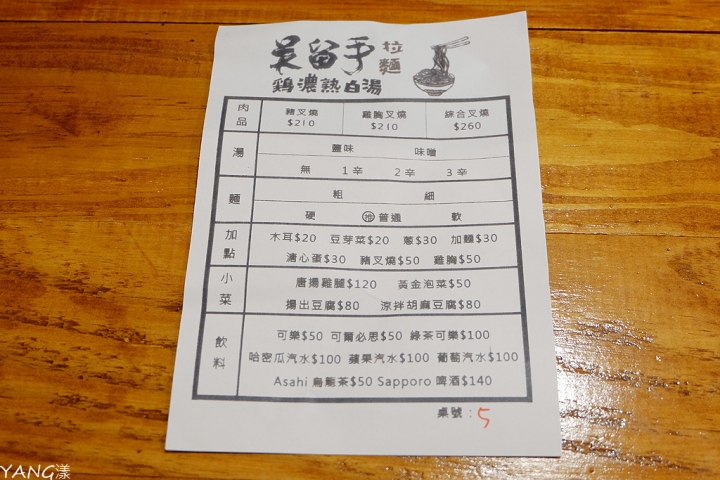 吳留手拉麵
鷄濃熟白湯
肉品 豬叉燒 $210 雞胸叉燒 $210 綜合叉燒 $260
湯 鹽味 味噌
無 1辛 2辛 3辛
麵 粗 細
硬 推普通 軟
加點 木耳$20 豆芽菜$20 蔥$30 加麵$30
溏心蛋$30 豬叉燒$50 雞胸$50
小菜 唐揚雞腿$120 黃金泡菜$50
揚出豆腐$80 涼拌胡麻豆腐$80
飲料 可樂$50 可爾必思$50 綠茶可樂$100
哈密瓜汽水$100 蘋果汽水$100 葡萄汽水$100
Asahi 烏龍茶$50 Sapporo 啤酒$140
桌號：5
YANG漾